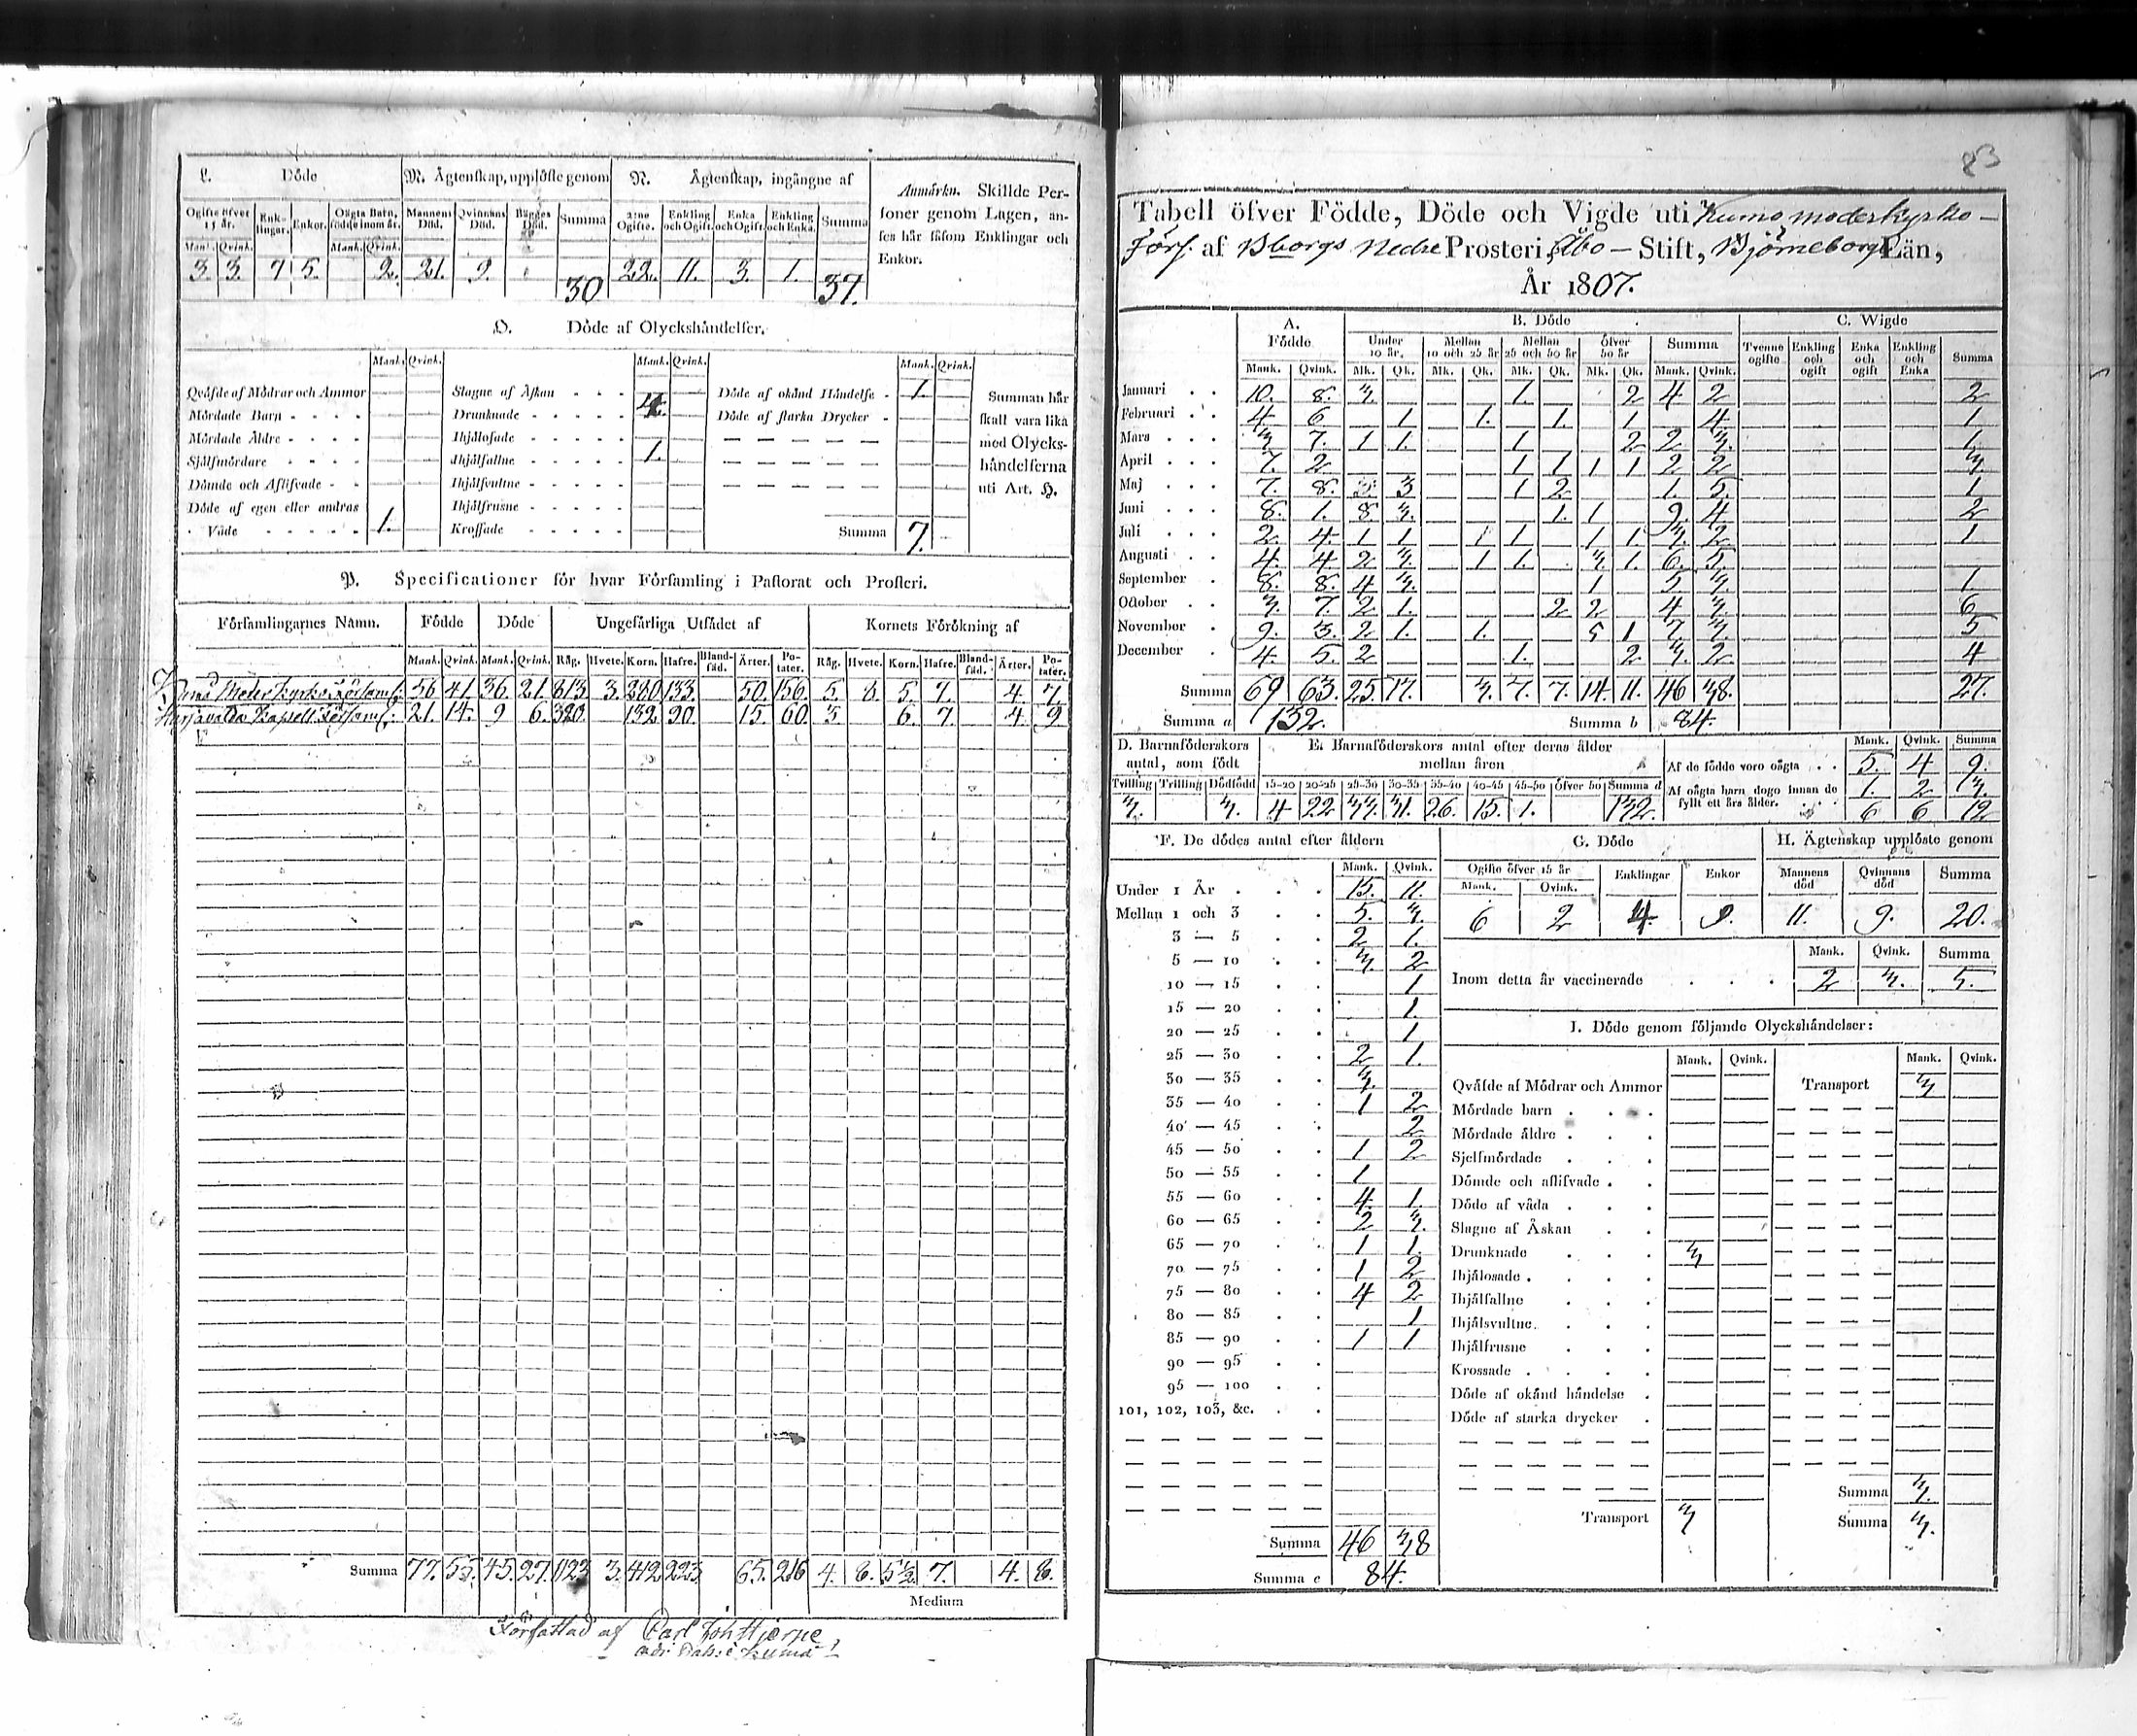 L. Döde
M. Ägtenskap, upplöste genom
N. Ägtenskap, ingångne af
Anmärkn. Skillde Personer genom Lagen, anses här såsom Enklingar och Enkor.
Ogifte öfver 15 år. Enklingar. Enkor. Oägta Barn, födde inom år. Mannens Död. Qvinnans Död. Bägges Död. Summa 2:ne Ogifte. Enkling och Ogift. Enka och Ogift. Enkling och Enka. Summa
Mank. Qvink. Mank. Qvink.
3. 3. 7 5. 2. 21. 9. 30 22. 11. 3. 1. 37.
O. Döde af Olyckshändelser.
Mank. Qvink. Mank. Qvink. Mank. Qvink.
Qväfde af Mödrar och Ammor Slagne af Åskan Döde af okänd Händelse 1.
Mördade Barn Drunknade 4. Döde af starka Drycker
Mördade Äldre Ihjälosade
Själfmördare Ihjälfallne 1.
Dömde och Aflifvade Ihjälsvultne
Döde af egen eller andras Ihjälfrusne
Våde 1. Krossade Summa 7.
Summan här skall vara lika med Olyckshändelserna uti Art. H.
P. Specificationer för hvar Församling i Pastorat och Prosteri.
Församlingarnes Namn. Födde Döde Ungefärliga Utsädet af Kornets Förökning af
Mank. Qvink. Mank. Qvink. Råg. Hvete. Korn. Hafre. Blandsäd. Ärter. Potater. Råg. Hvete. Korn. Hafre. Blandsäd. Ärter. Potater.
Kumo Moder Kyrko Församl: 56 41 36. 21. 813 3. 280 133 50. 156. 5. 8. 5. 7. 4. 7.
Harjavalda Kapell Församl: 21. 14. 9 6. 320. 132 90. 15 60. 3 6. 7. 4. 9
Summa 77. 55. 45. 27. 1123 3. 412 223. 65. 216 4. 8. 5½ 7. 4. 8.
Medium
Författad af Carl Joh Hjerpe
83
Tabell öfver Födde, Döde och Vigde uti Kumo moderkyrko –
Förs. af Bborgs Nedre Prosteri, Åbo – Stift, Björneborgs Län,
År 1807.
A. Födde B. Döde C. Wigde
Under 10 år. Mellan 10 och 25 år Mellan 25 och 50 år Öfver 50 år Summa Tvenne ogifte Enkling och ogift Enka och ogift Enkling och Enka Summa
Mank. Qvink. Mk. Qk. Mk. Qk. Mk. Qk. Mk. Qk. Mank. Qvink.
Januari 10. 8. 3. 1. 2 4 2 2
Februari 4 6 1 1. 1. 1 4 1
Mars 3 7. 1 1. 1 2 2 3. 1.
April 7. 2 1 1 1 1 2 2 3
Maj 7. 8. 3 1 2. 1. 5. 1
Juni 8. 1. 8 3. 1. 1 9. 4 2
Juli 2 4 1 1 1 1 1 1 3. 2 1
Augusti 4. 4 2 3. 1 1. 3 1. 6. 5.
September 8. 8. 4 3. 1 5 3. 1
October 3. 7 2 1 2 2 4 3. 6
November 9. 3. 2 1. 1. 5 1 7. 3. 5
December 4. 5. 2 1. 2 3. 2 4
Summa 69 63. 25. 17. 3. 7. 7. 14. 11. 46 38. 27.
Summa a 132. Summa b 84.
D. Barnaföderskors antal, som födt
E. Barnaföderskors antal efter deras ålder mellan åren
Mank. Qvink. Summa
Tvilling Trilling Dödfödd 15-20 20-25 25-30 30-35 35-40 40-45 45-50 Öfver 50 Summa d
3. 3. 4 22 33. 31. 26. 15. 1. 132.
Af de födde voro oägta 5. 4 9.
Af oägta barn dogo innan de fyllt ett års ålder. 1. 2 3.
6 6 12
F. De dödes antal efter åldern
Mank. Qvink.
Under 1 År 15. 11.
Mellan 1 och 3 5. 3.
3 — 5 2 1.
5 — 10 3. 2
10 — 15 1
15 — 20 1.
20 — 25 1
25 — 30 2 1.
30 — 35 3.
35 — 40 1 2
40 — 45 2
45 — 50 1 2
50 — 55 1
55 — 60 4. 1.
60 — 65 2 3.
65 — 70 1 1.
70 — 75 1 2
75 — 80 4 2
80 — 85 1
85 — 90 1 1
90 — 95
95 — 100
101, 102, 103, &c.
Summa 46 38
Summa e 84.
G. Döde
H. Ägtenskap upplöste genom
Ogifte öfver 15 år Enklingar Enkor Mannens död Qvinnans död Summa
Mank. Qvink.
6 2 4. 9. 11. 9. 20.
Mank. Qvink. Summa
Inom detta år vaccinerade 2 3. 5.
I. Döde genom följande Olyckshändelser:
Mank. Qvink. Mank. Qvink.
Qväfde af Mödrar och Ammor Transport 3
Mördade barn
Mördade äldre
Sjelfmördade
Dömde och aflifvade
Döde af våda
Slagne af Åskan
Drunknade 3
Ihjälosade
Ihjälfallne
Ihjälsvultne
Ihjälfrusne
Krossade
Döde af okänd händelse
Döde af starka drycker
Summa 3.
Transport 3 Summa 3.